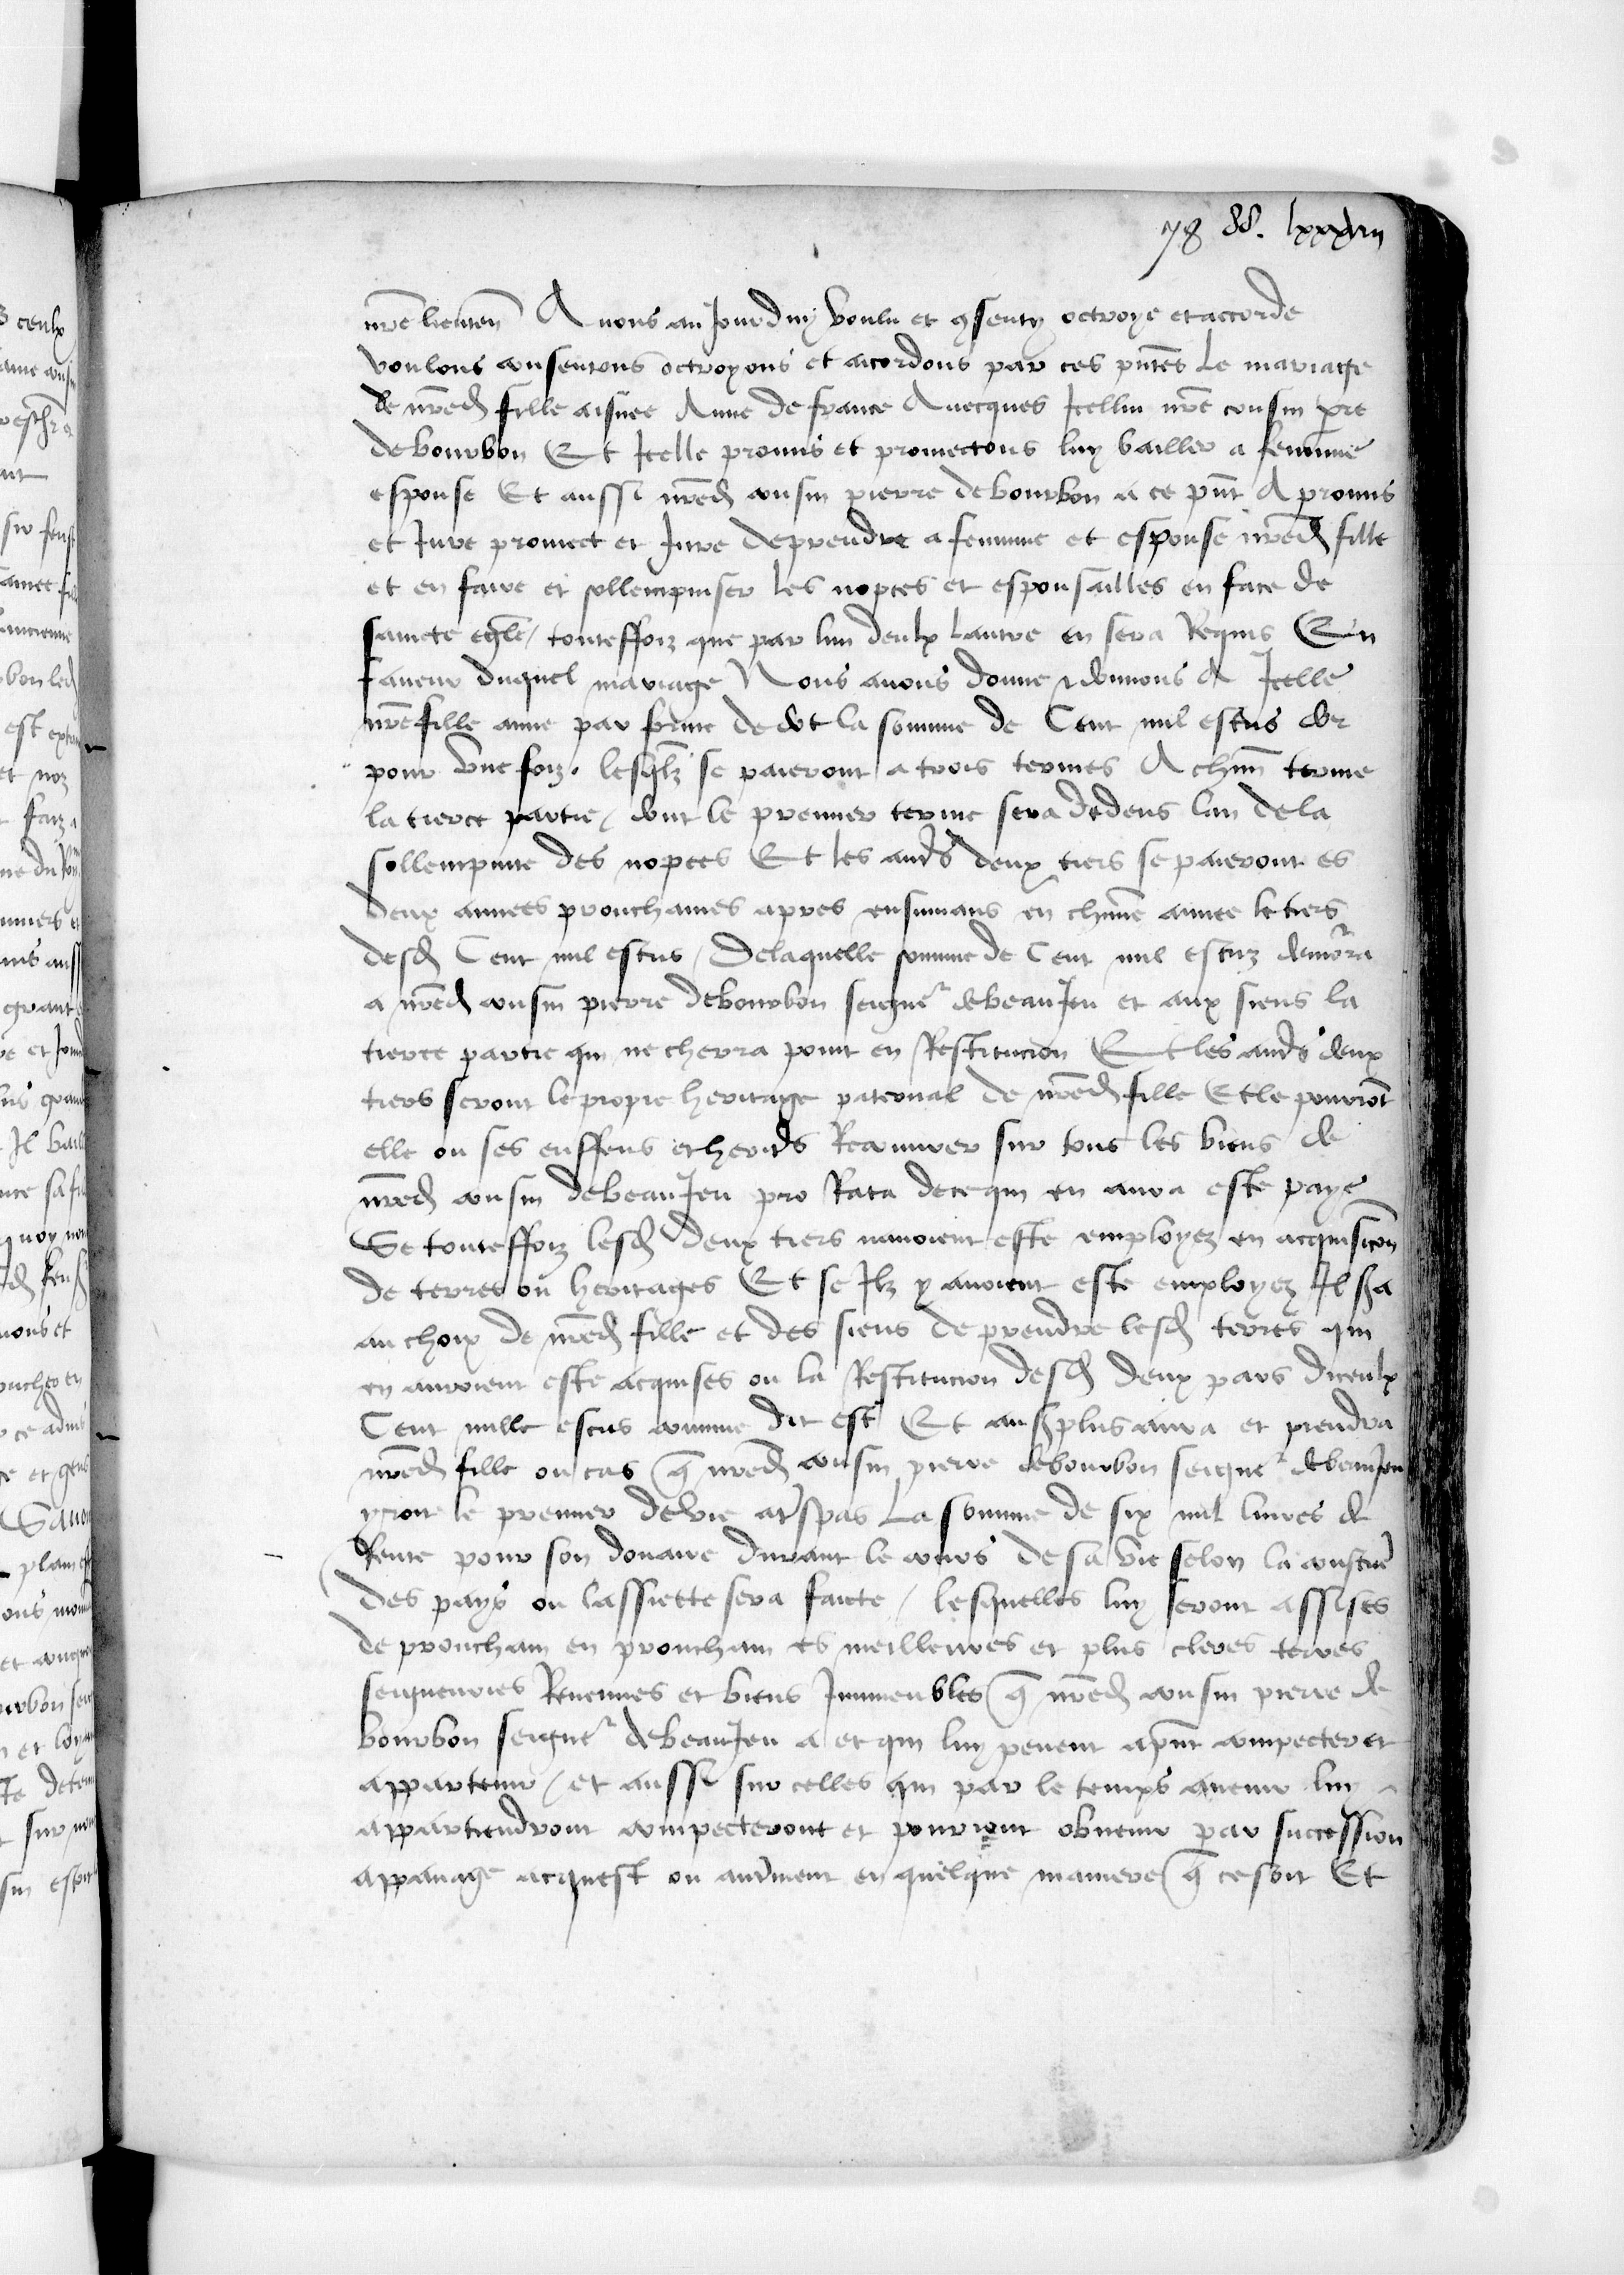 78 88. lxxxviii
nre lieuten Avons au Jourduy voulu et gsenty octroye et accorde
voulons consentons octroyons et acordons par ces pntes Le mariatge
de nred fille aisnee Anne de france Avecques Icellui nre cousin pre
de bourbon Et Icelle promis et promectons luy bailler a femme
espouse Et aussi nred cousin pierre de bourbon a ce pnt A promis
et Jure promect et Jure de prendre a femme et espouse nred fille
et en faire et sollempniser les nopces et espousailles en face de
saincte eglē / touteffoiz que par lun deulx Lautre en sera Requis En
faveur duquel mariage Nous avons donne et donnons A Icelle
nre fille anne par forme de dot la somme de Cent mil escus dor
pour vne foiz. lesqlz se paieront a trois termes A chun terme
la tierce partie / dont le premier terme sera dedens lan de la
sollempnite des nopces Et les auds deux tiers se paieront es
deux annees prouchaines apres ensuivans en chune annee le tiers
desd Cent mil escus / De laquelle somme de Cent mil escuz demora
a nred cousin pierre de bourbon seigner de beauJeu et aux siens la
tierce partie qui ne cherra point en Restitucion Et les auds deux
tiers seront le propre heritage paternal de nred fille Et le pourrot
elle ou ses enffens et herits Recouvrer sur tous les biens de
nred cousin de beauJeu pro Rata de ce qui en aura este paye
Se touteffoiz lesd deux tiers navoient este employez en acquisicon
de terres ou heritages Et se Ilz y avoient este employez Il sa
au choix de nred fille et des siens de prendre lesd terres qui
en auroient este acquises ou la Restitucion desd deux pars diceulx
Cent mille escus comme dit est Et au splus aura et prendra
nred fille ou cas q nred cousin pierre de bourbon seigner de beauJeu
yroit le premier de vie a tspas La somme de six mil livres de
Rente pour son douaire durant le cours de sa vie selon la coustue
des pays ou lassiette sera faicte / lesquelles luy seront assises
de prouchain en prouchain es meilleures et plus cleres terres
seigneuries Revenues et biens Immeubles q nred cousin pierre de
bourbon seigner de beauJeu a et qui luy pevent a pnt compecter et
appartenir / et aussi sur celles qui par le temps avenir luy
appartiendront compecteront et pourront obvenir par succession
appanage acquest ou autrment en quelque maniere q ce soit Et